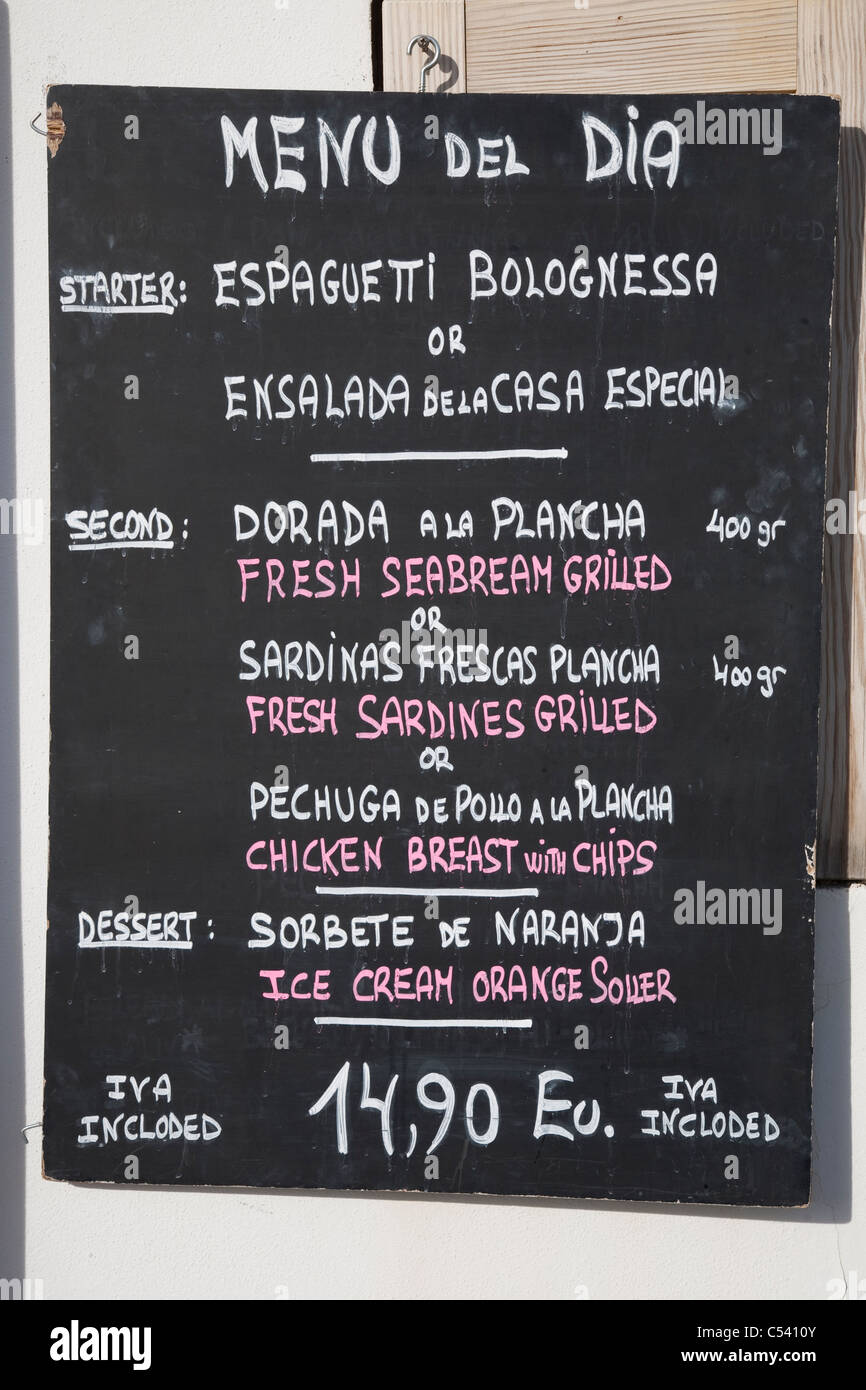 MENU DEL DIA
STARTER: ESPAGUETTI BOLOGNESSA
OR
ENSALADA DE LA CASA ESPECIAL
SECOND: DORADA A LA PLANCHA 400 gr
FRESH SEABREAM GRILLED
OR
SARDINAS FRESCAS PLANCHA 400 gr
FRESH SARDINES GRILLED
OR
PECHUGA DE POLLO A LA PLANCHA
CHICKEN BREAST WITH CHIPS
DESSERT: SORBETE DE NARANJA
ICE CREAM ORANGE SOLLER
IVA INCLODED 14,90 EU. IVA INCLODED
alamy
Image ID: C5410Y
www.alamy.com